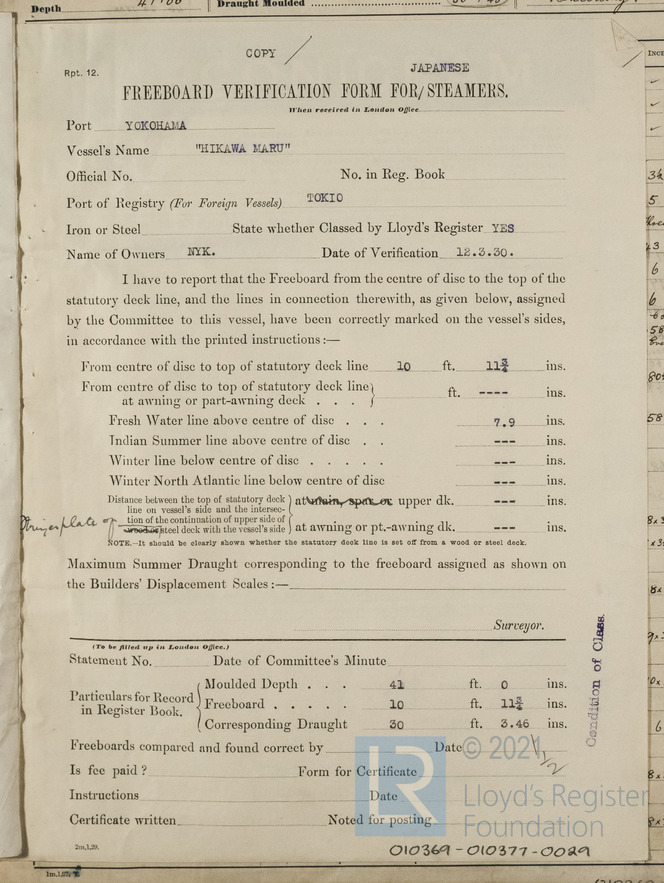 Depth
Draught Moulded
COPY
JAPANESE
Rpt. 12.
FREEBOARD VERIFICATION FORM FOR/STEAMERS.
When received in London Office
Port YOKOHAMA
Vessel's Name "HIKAWA MARU"
Official No. No. in Reg. Book
Port of Registry (For Foreign Vessels) TOKIO
Iron or Steel State whether Classed by Lloyd's Register YES
Name of Owners NYK. Date of Verification 12.3.30.
I have to report that the Freeboard from the centre of disc to the top of the
statutory deck line, and the lines in connection therewith, as given below, assigned
by the Committee to this vessel, have been correctly marked on the vessel's sides,
in accordance with the printed instructions:—
From centre of disc to top of statutory deck line 10 ft. 11¾ ins.
From centre of disc to top of statutory deck line
at awning or part-awning deck . . . ft. ---- ins.
Fresh Water line above centre of disc . . . 7.9 ins.
Indian Summer line above centre of disc . . --- ins.
Winter line below centre of disc . . . . . --- ins.
Winter North Atlantic line below centre of disc --- ins.
Distance between the top of statutory deck
line on vessel's side and the intersec-
tion of the continuation of upper side of
wood or steel deck with the vessel's side
at main, spar or upper dk. --- ins.
at awning or pt.-awning dk. --- ins.
Stringer plate of
NOTE.—It should be clearly shown whether the statutory deck line is set off from a wood or steel deck.
Maximum Summer Draught corresponding to the freeboard assigned as shown on
the Builders' Displacement Scales:—
Surveyor.
(To be filled up in London Office.)
Statement No. Date of Committee's Minute
Particulars for Record
in Register Book.
Moulded Depth . . . 41 ft. 0 ins.
Freeboard . . . . . 10 ft. 11¾ ins.
Corresponding Draught 30 ft. 3.46 ins.
Condition of Class.
Freeboards compared and found correct by Date
Is fee paid? Form for Certificate
Instructions Date
Certificate written Noted for posting
© 2021
LR
Lloyd's Register
Foundation
2m,1,29.
010369-010377-0029
1m,1,27.